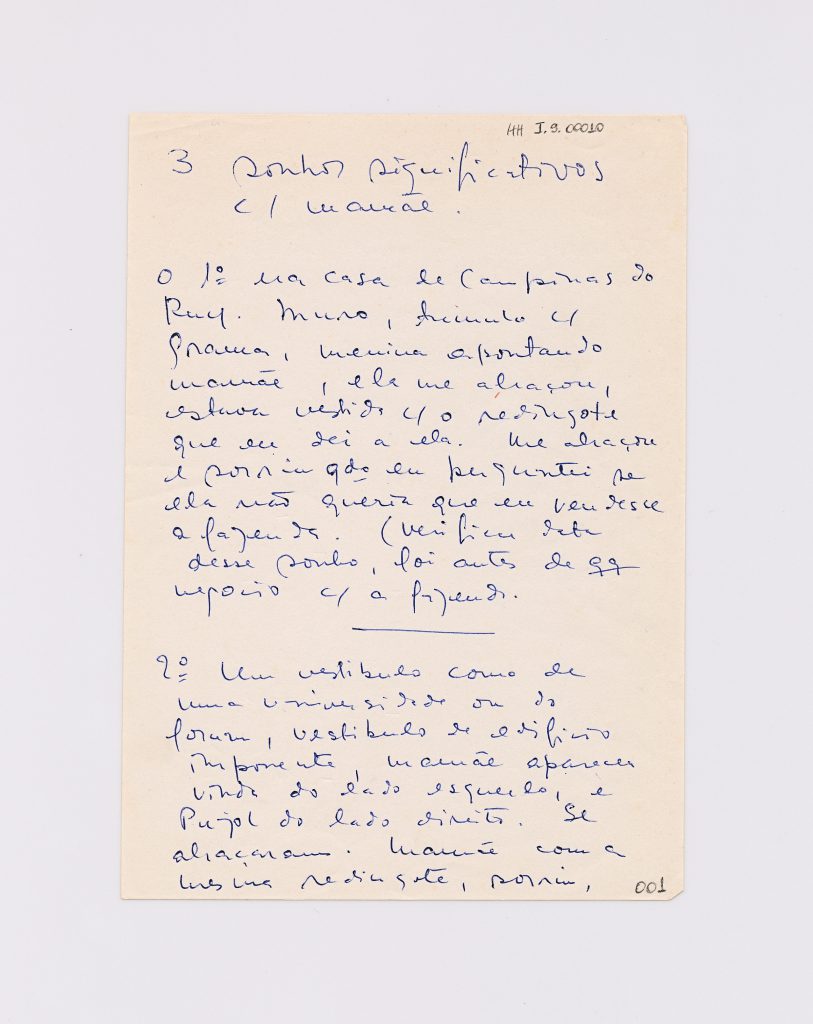 HH I.9.00010
3 sonhos significativos
c/ mamãe.
O 1º na casa de Campinas do
Ruy. Muro, túmulo c/
grama, menina apontando
mamãe, ela me abraçou,
estava vestida c/ o redingote
que eu dei a ela. Me abraçou
e sorriu qdo eu perguntei se
ela não queria que eu vendesse
a fazenda. (Verificar data
desse sonho, foi antes de qq
negocio c/ a fazenda.
2º Um vestibulo como de
uma universidade ou do
forum, vestibulo de edificio
imponente, mamãe aparece
vinda do lado esquerdo, e
Pujol do lado direito. Se
abraçaram. Mamãe com a
mesma redingote, sorriu,
001